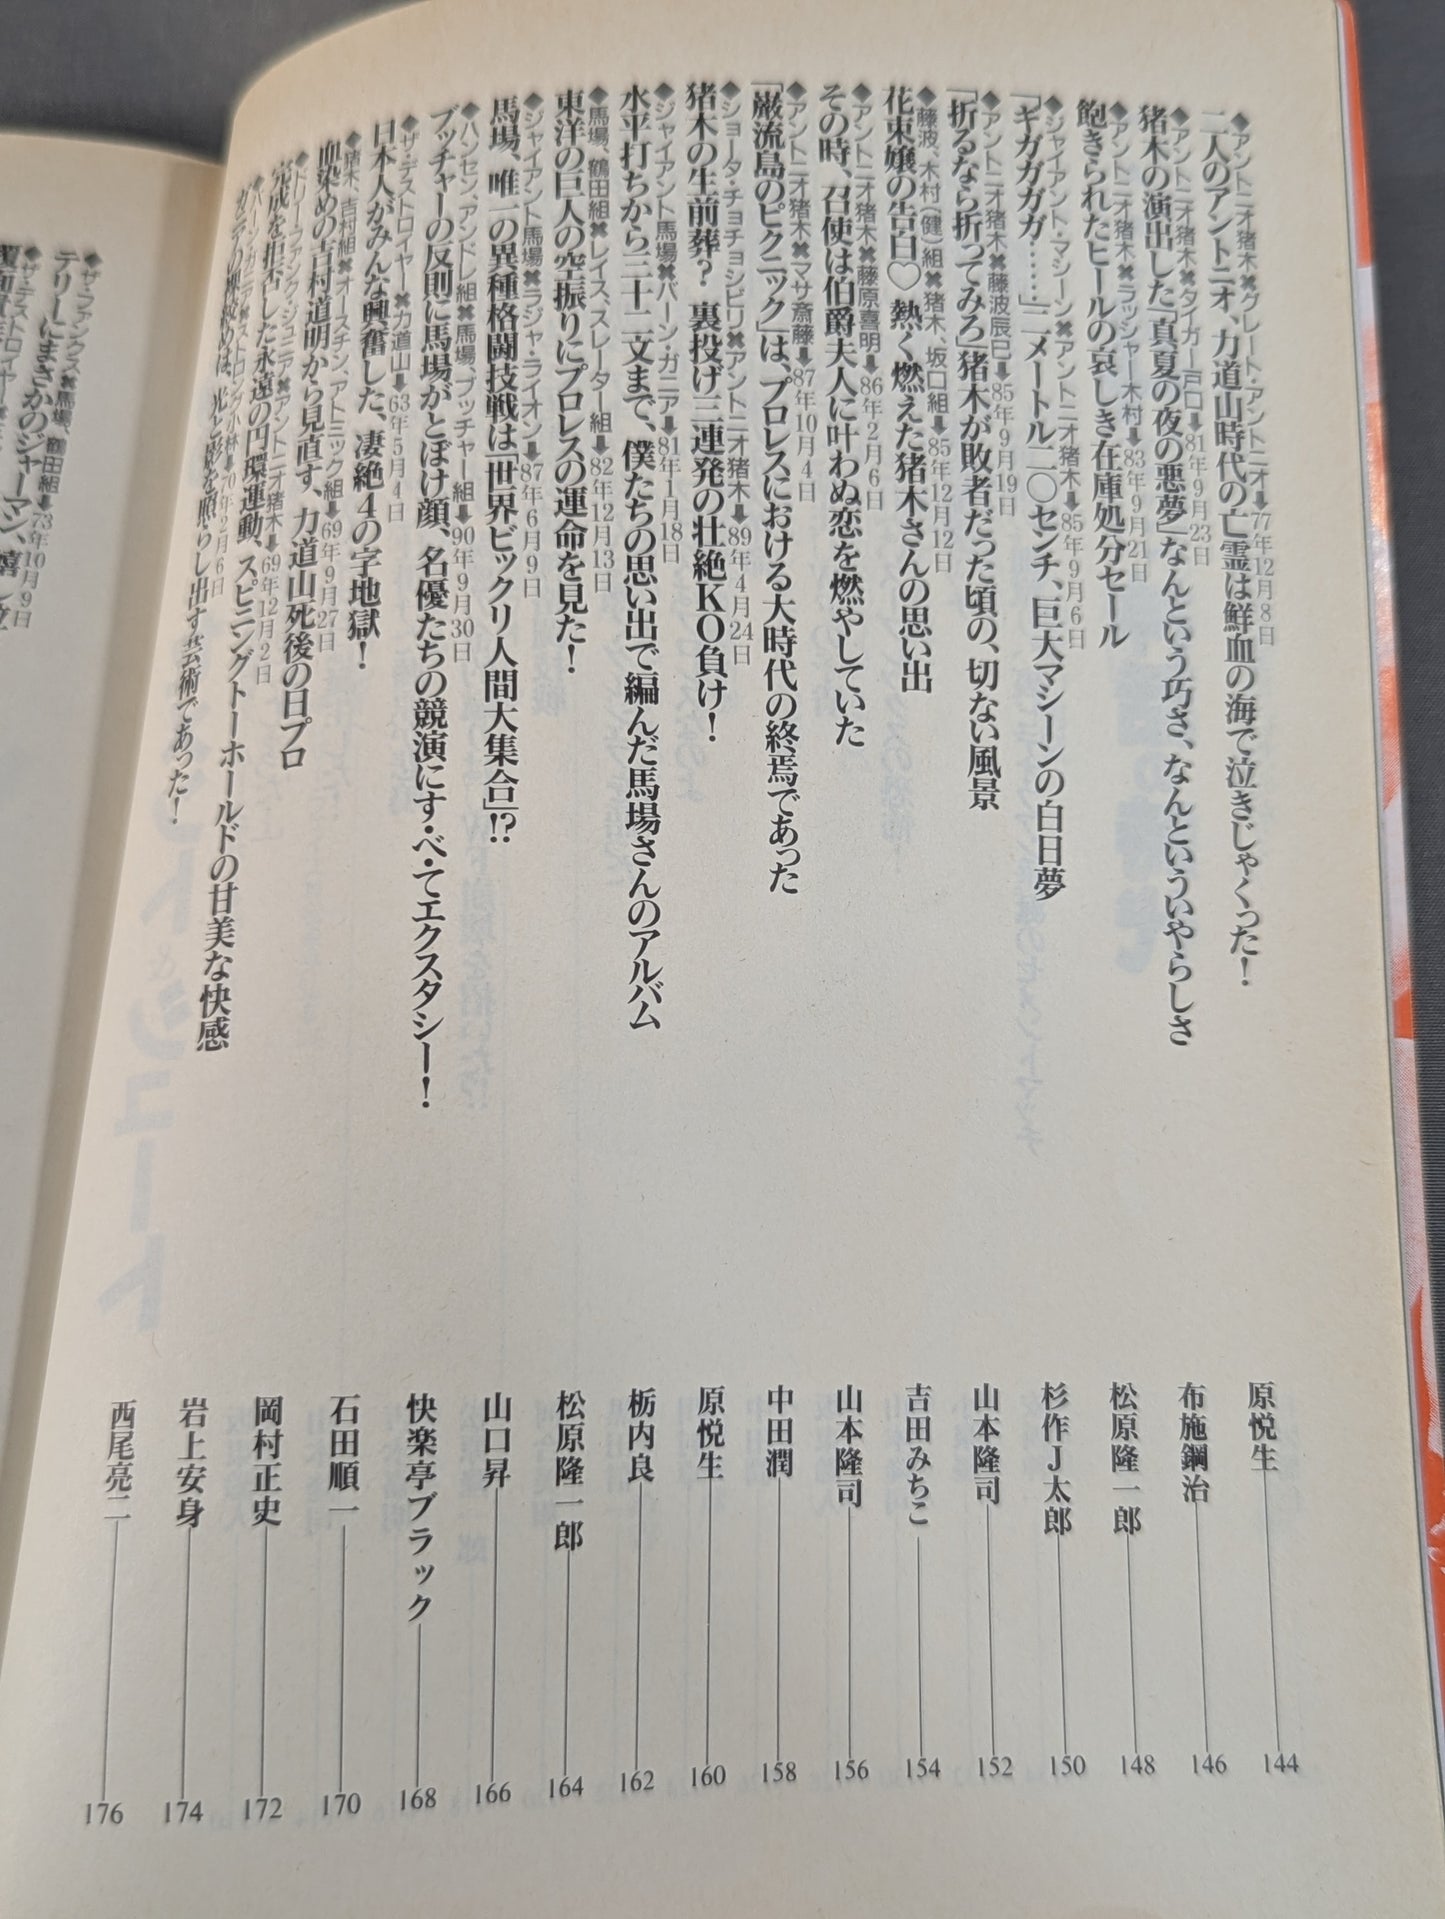 ◆アントニオ猪木✖グレート・アントニオ➡77年12月8日
二人のアントニオ、力道山時代の亡霊は鮮血の海で泣きじゃくった！
原悦生
144
◆アントニオ猪木✖タイガー戸口➡81年9月23日
猪木の演出した「真夏の夜の悪夢」なんという巧さ、なんといういやらしさ
布施鋼治
146
◆アントニオ猪木✖ラッシャー木村➡83年9月21日
飽きられたヒールの哀しき在庫処分セール
松原隆一郎
148
◆ジャイアント・マシーン✖アントニオ猪木➡85年9月6日
「ギガガガガ……」二メートル二〇センチ、巨大マシーンの白日夢
杉作J太郎
150
◆アントニオ猪木✖藤波辰巳➡85年9月19日
「折るなら折ってみろ」猪木が敗者だった頃の、切ない風景
山本隆司
152
◆藤波、木村（健）組✖猪木、坂口組➡85年12月12日
花束嬢の告白♡ 熱く燃えた猪木さんの思い出
吉田みちこ
154
◆アントニオ猪木✖藤原喜明➡86年2月6日
その時、召使は伯爵夫人に叶わぬ恋を燃やしていた
山本隆司
156
◆アントニオ猪木✖マサ斎藤➡87年10月4日
「巌流島のピクニック」は、プロレスにおける大時代の終焉であった
中田潤
158
◆ショータ・チョチョシビリ✖アントニオ猪木➡89年4月24日
猪木の生前葬？ 裏投げ三連発の壮絶KO負け！
原悦生
160
◆ジャイアント馬場✖バーン・ガニア➡81年1月18日
水平打ちから三十二文まで、僕たちの思い出で編んだ馬場さんのアルバム
栃内良
162
◆馬場、鶴田組✖レイス、スレーター組➡82年12月13日
東洋の巨人の空振りにプロレスの運命を見た！
松原隆一郎
164
◆ジャイアント馬場✖ラジャ・ライオン➡87年6月9日
馬場、唯一の異種格闘技戦は「世界ビックリ人間大集合」!?
山口昇
166
◆ハンセン、アンドレ組✖馬場、ブッチャー組➡90年9月30日
ブッチャーの反則に馬場がとぼけ顔、名優たちの競演にす・べ・てエクスタシー！
快楽亭ブラック
168
◆ザ・デストロイヤー✖力道山➡63年5月4日
日本人がみんな興奮した、凄絶4の字地獄！
石田順一
170
◆猪木、吉村組✖オースチン、アトミック組➡69年9月27日
血染めの吉村道明から見直す、力道山死後の日プロ
岡村正史
172
◆ドリー・ファンク・ジュニア✖アントニオ猪木➡69年12月2日
完成を拒否した永遠の円環運動、スピニングトーホールドの甘美な快感
岩上安身
174
◆バーン・ガニア✖ストロング小林➡70年2月6日
ガニアの裸絞めは、光と影を照らし出す芸術であった！
西尾亮二
176
◆ザ・ファンクス✖馬場、鶴田組➡73年10月9日
テリーにまさかのジャーマン、
◆ザ・デストロイヤー✖